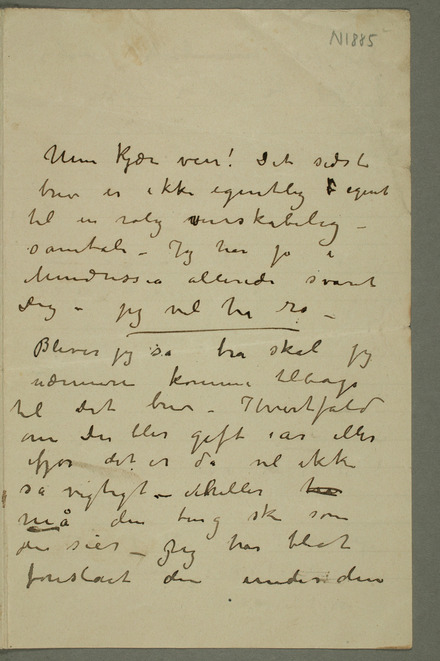 N1885
Min Kjære ven! Det sidste
brev er ikke egentlig egent
til en rolig venskabelig –
samtale – Jeg har jo i
allerede svaret
Dig – jeg vil ha ro –
Bliver jeg så bra skal jeg
nærmere komme tilbage
til det brev – Ihvertfald
om Du blir gift iår eller
ifjor det er da vel ikke
så vigtigt –
må den ting ske som
du sier – Jeg har blot
foreslået den